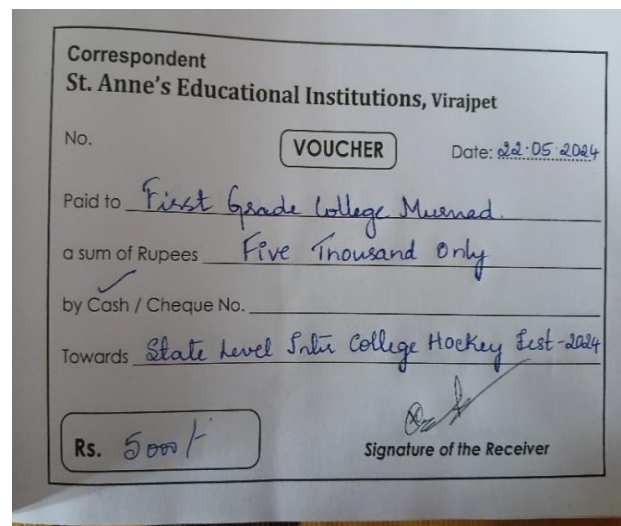 Correspondent
St. Anne's Educational Institutions, Virajpet
No.
VOUCHER
Date: 22.05.2024
Paid to First Grade College Murnad.
a sum of Rupees Five Thousand Only
by Cash / Cheque No.
Towards State Level Inter College Hockey Fest-2024
Rs. 5000/-
Signature of the Receiver